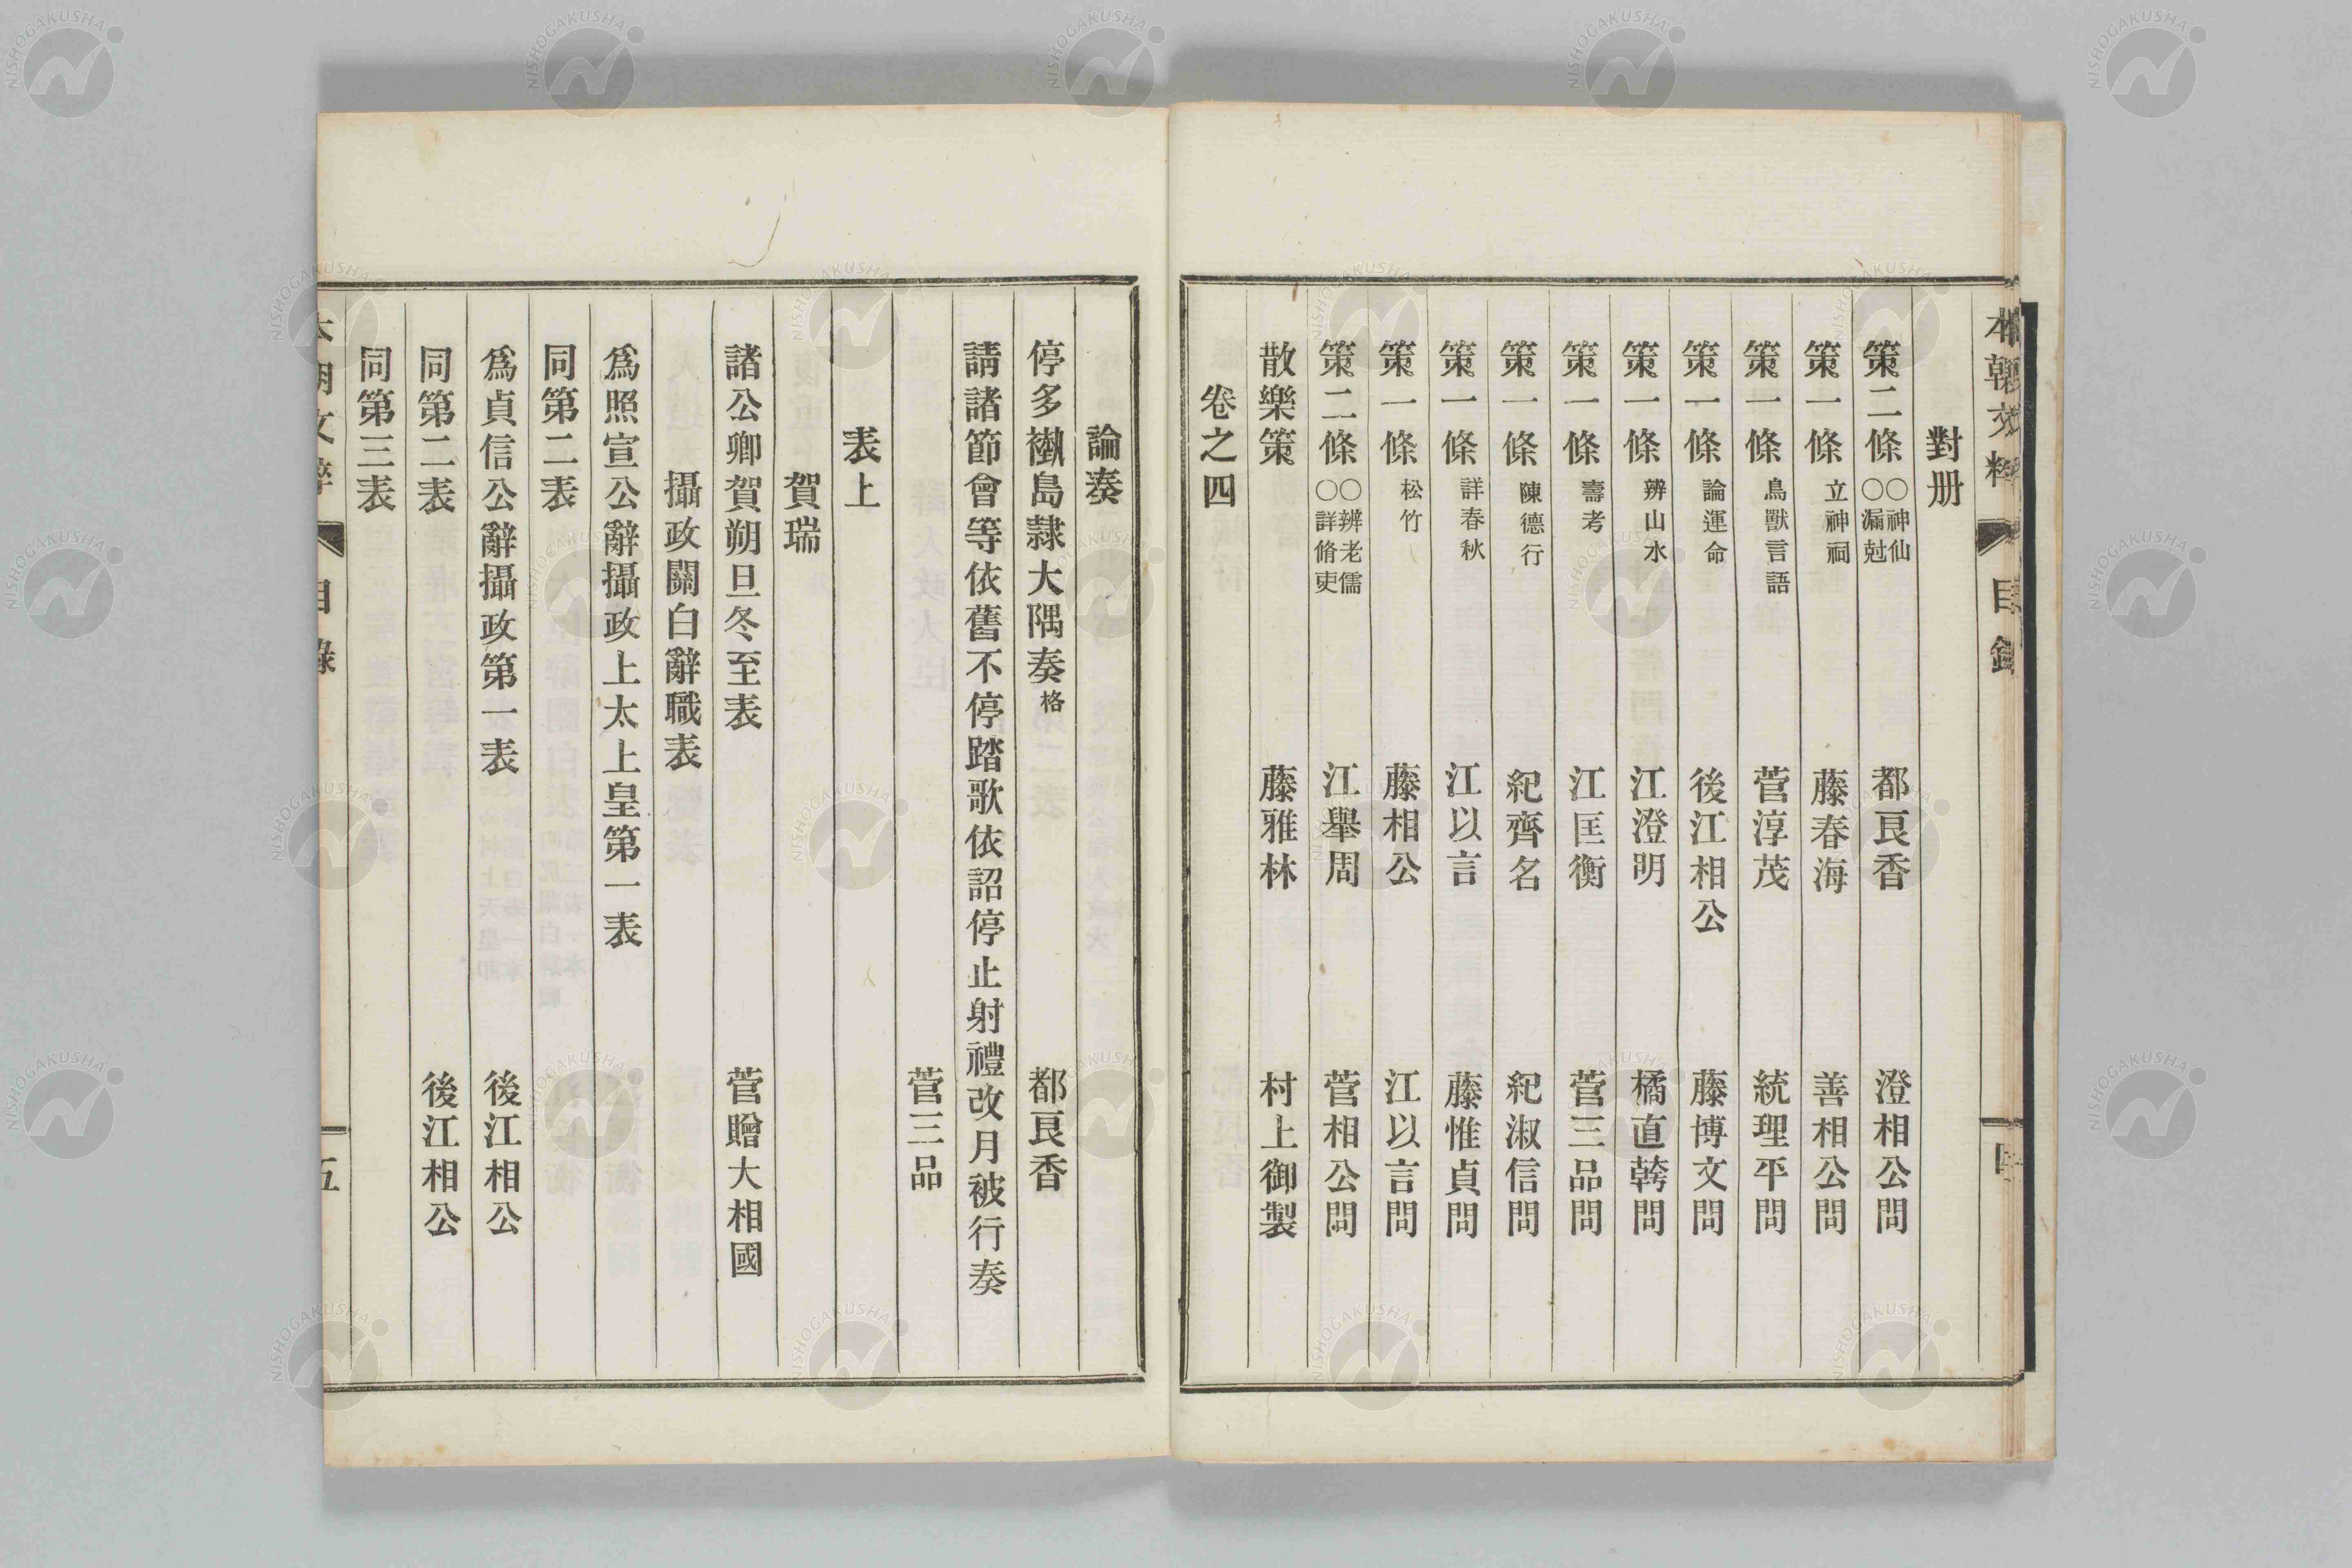 本朝文粹 目錄 四
對册
策二條 ○神仙 ○漏尅 都良香 澄相公問
策一條 立神祠 藤春海 善相公問
策一條 鳥獸言語 菅淳茂 統理平問
策一條 論運命 後江相公 藤博文問
策一條 辨山水 江澄明 橘直幹問
策一條 壽考 江匡衡 菅三品問
策一條 陳德行 紀齊名 紀淑信問
策一條 詳春秋 江以言 藤惟貞問
策一條 松竹 藤相公 江以言問
策二條 ○辨老儒 ○詳脩吏 江舉周 菅相公問
散樂策 藤雅林 村上御製
卷之四
論奏
停多褹島隷大隅奏 格 都良香
請諸節會等依舊不停踏歌依詔停止射禮改月被行奏
菅三品
表上
賀瑞
諸公卿賀朔旦冬至表 菅贈大相國
攝政關白辭職表
爲照宣公辭攝政上太上皇第一表
同第二表
爲貞信公辭攝政第一表 後江相公
同第二表 後江相公
同第三表
本朝文粹 目錄 五
NISHOGAKUSHA